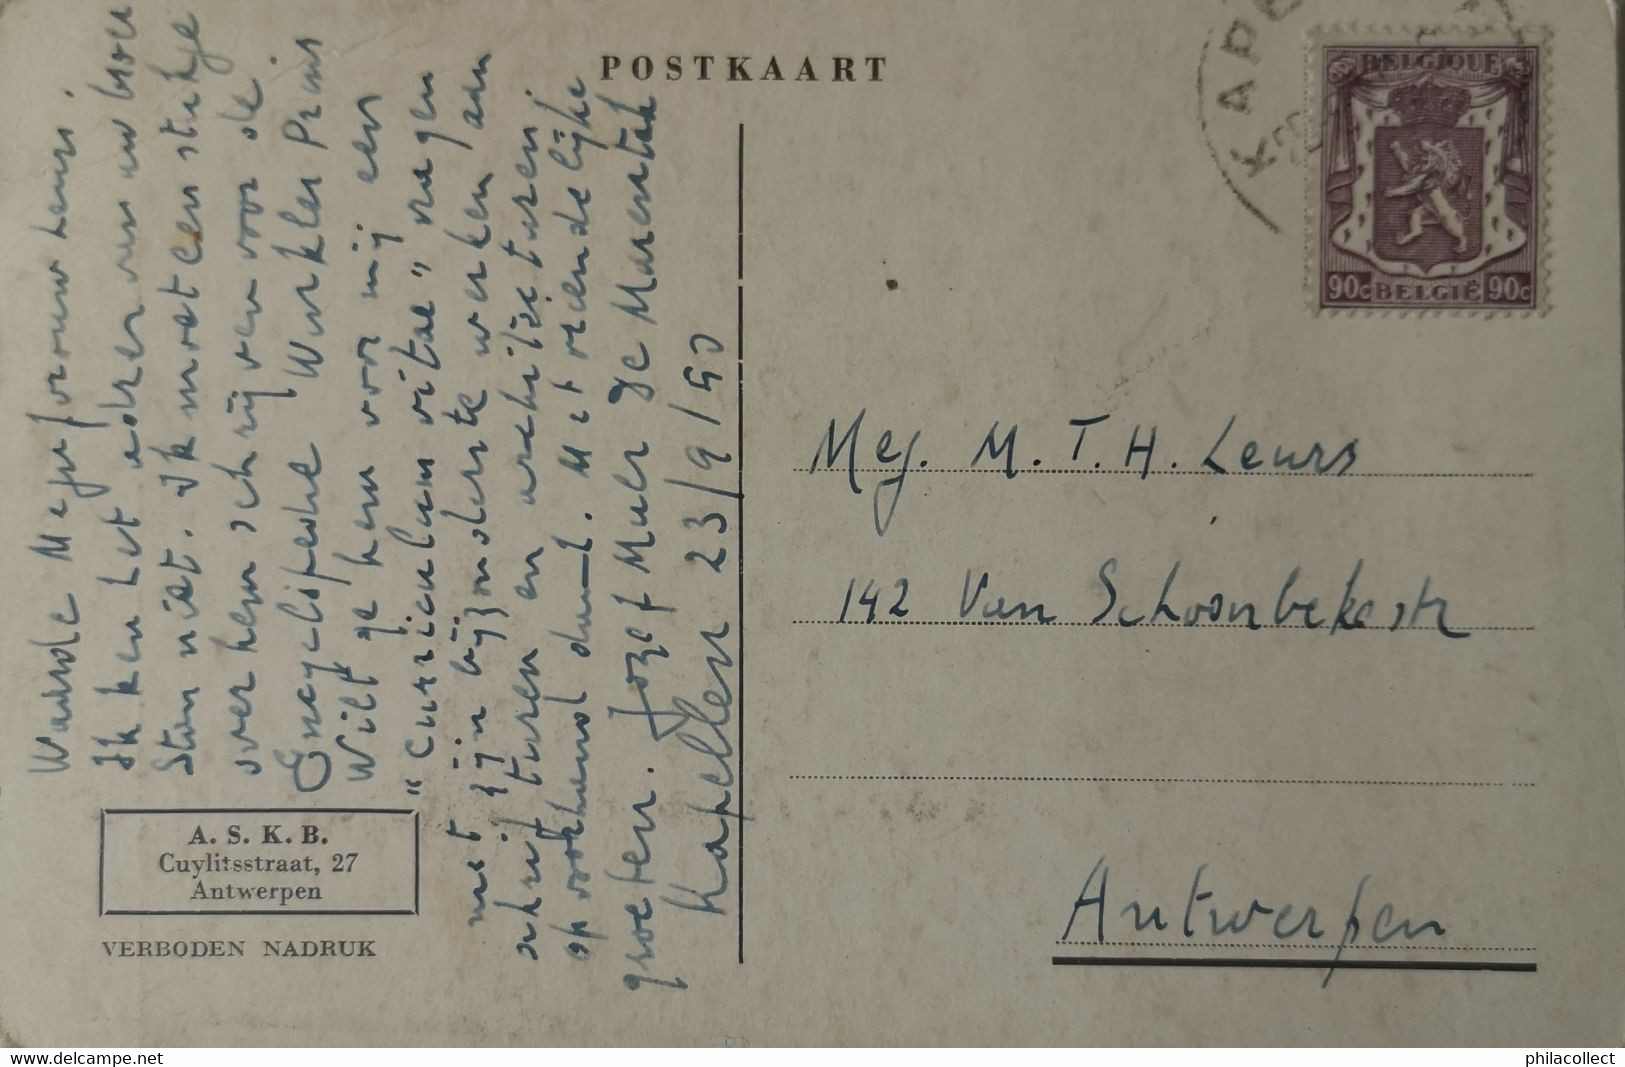 POSTKAART
KAPE
BELGIQUE
90c BELGIË 90c
Waarde Mejufvrouw Leurs,
Ik ken het adres van uw broer
Stan niet. Ik moet een stukje
over hem schrijven voor de
Encyclopedie Winkler Prins
Wilt ge hem voor mij een
"Curriculum vitae" vragen
met zijn bijzonderste werken aan
schilfturen en architecturen;
op voorhand dank. Met vriendelijke
groeten. Jozef Muls De Marentak
Kapellen 23/9/50
Mej. M. T. H. Leurs
142 Van Schoonbekestr
Antwerpen
A. S. K. B.
Cuylitsstraat, 27
Antwerpen
VERBODEN NADRUK
www.delcampe.net
philacollect